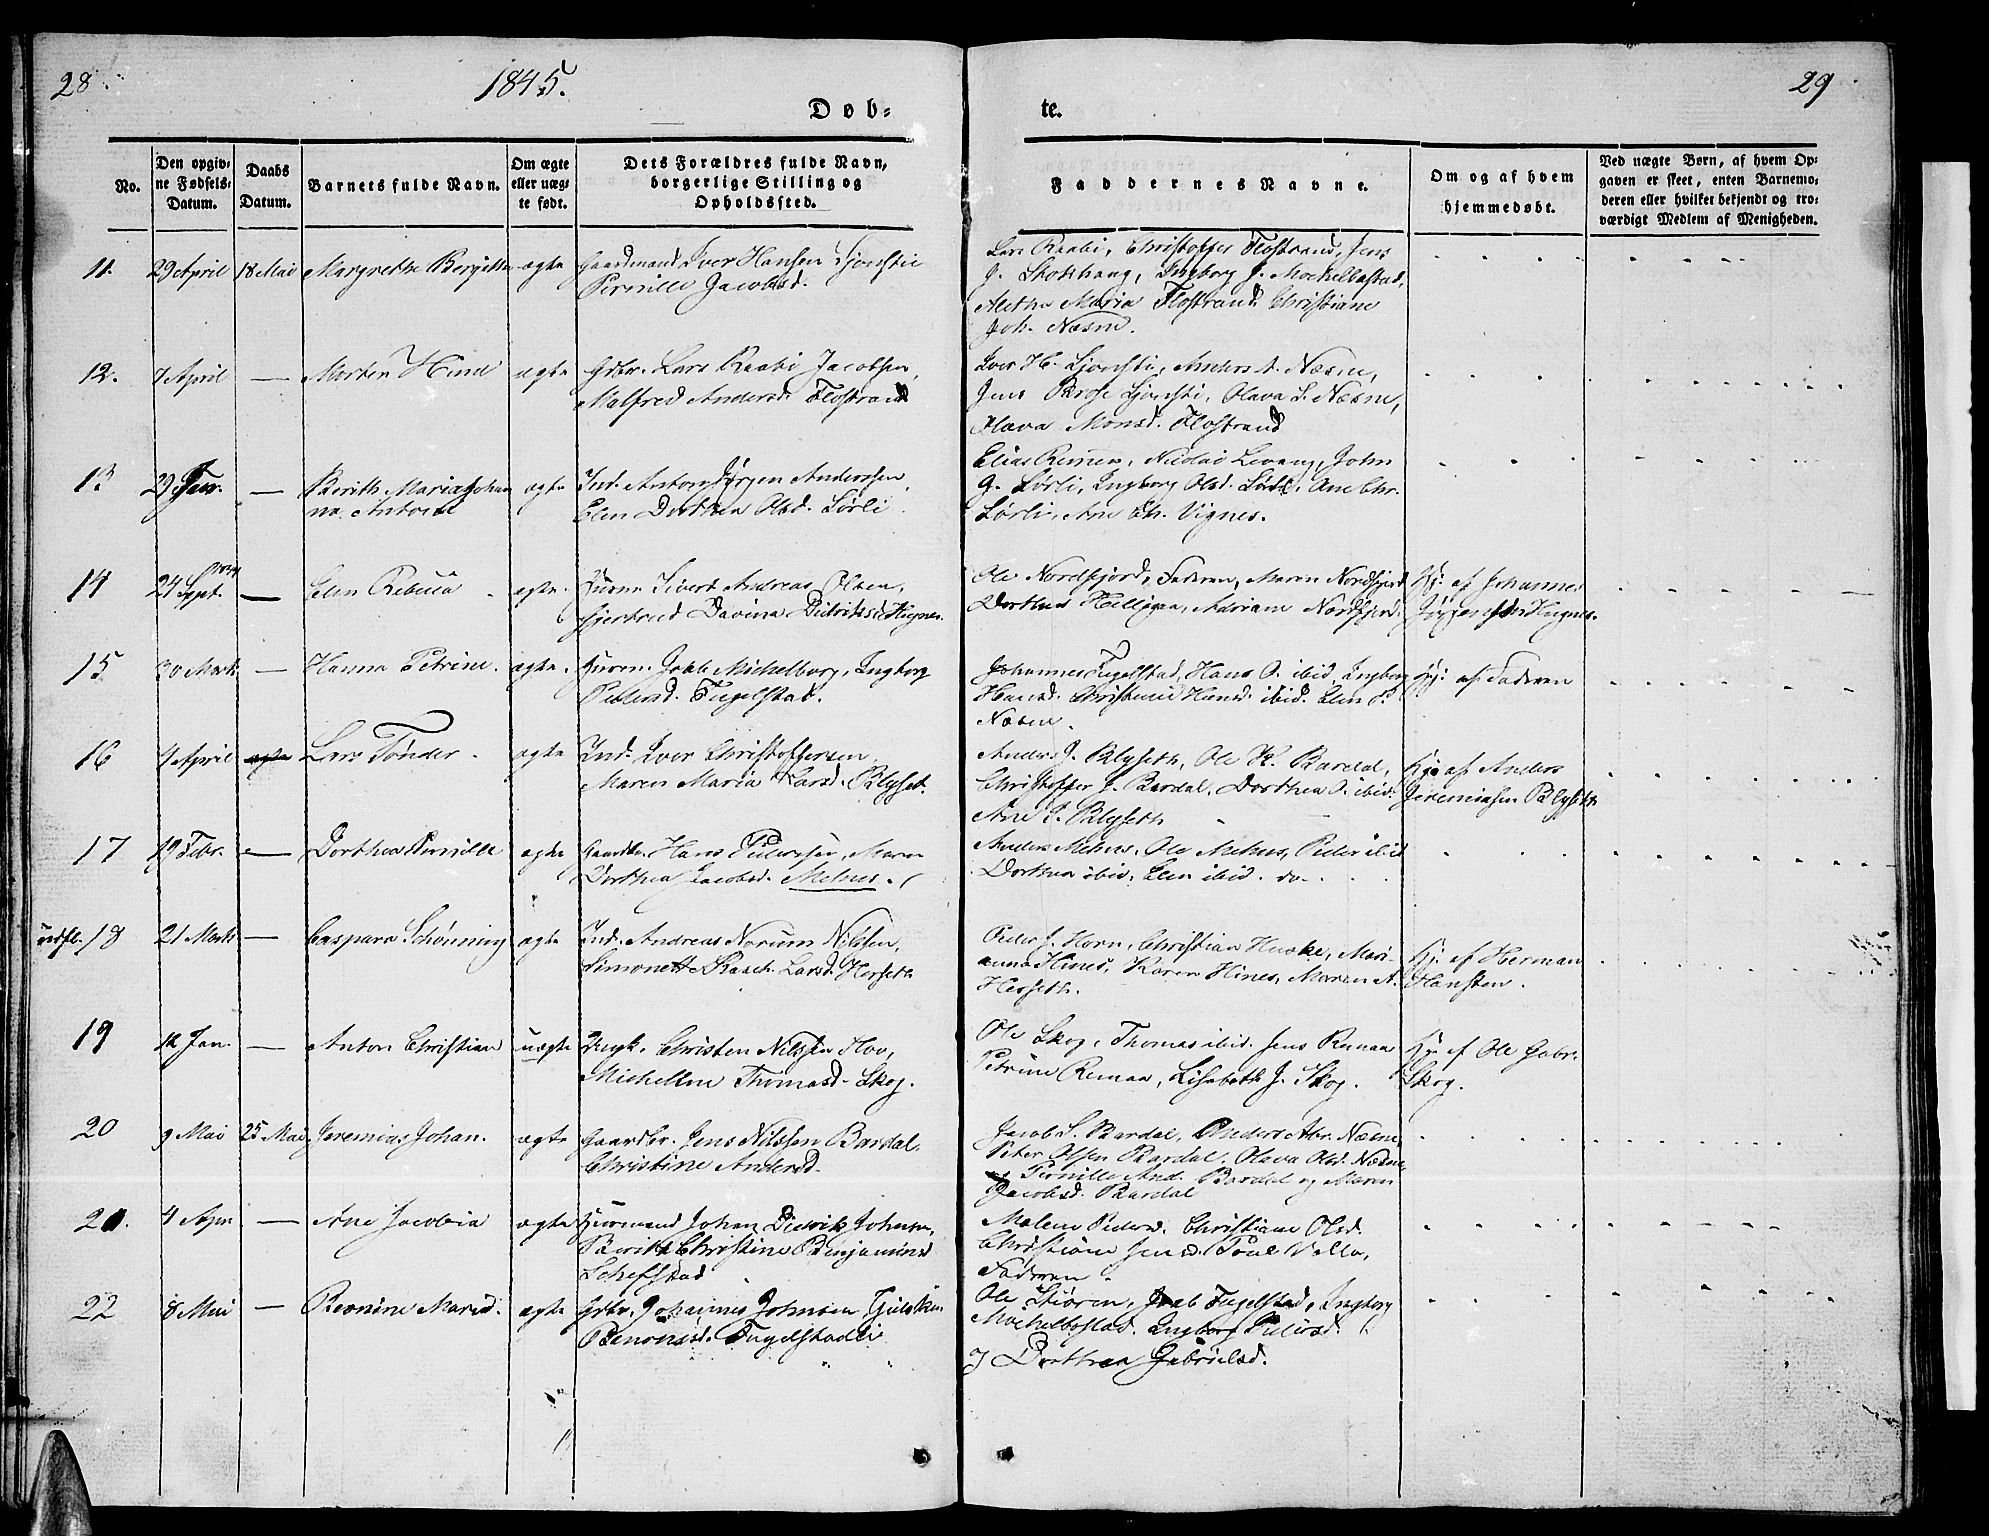 28
1845.
29
Døb-
te.
No.
Den opgiv-
ne Fødsels-
Datum.
Daabs
Datum.
Barnets fulde Navn.
Om ægte
eller uæg-
te født.
Dets Forældres fulde Navn,
borgerlige Stilling og
Opholdssted.
Faddernes Navne.
Om og af hvem
hjemmedøbt.
Ved uægte Børn, af hvem Op-
gaven er skeet, enten Barnemo-
deren eller hvilket bekjendt og tro-
værdigt Medlem af Menigheden.
11. 29 April 18 Mai Margrethe Bergitte ægte Gaardmand Iver Hansen Sjonstie
Pernille Jacobsd.
Lars Raabi, Christoffer Flostrand, Jens
J. Skokhaug, Ingborg J. Mechelbostad,
Alethe Maria Flostrand, Christiane
Joh. Næsne.
12. 7 April — Morten Hind ægte Grbr. Lars Raabi Jacobsen,
Malfred Andersd. Flostrand
Iver H. Sjonsti, Anders A. Næsne,
Jens Brose Sjonsti, Olava S. Næsne,
Olava Monsd. Flostrand
13 29 Jan. — Berith Maria Johan
na Antona
ægte Ind. Anton Jørgen Anderssen,
Elen Dorthea Olsd. Sørli
Elias Remen, Nicolai Levang, John
G. Sørli, Ingborg Olsd. Sørli, Ane Chr.
Sørli, Ane Ch. Vignes.
14 24 Sept. 1844 — Elen Rebecca ægte. Huusm. Sivert Andreas Olsen,
Gjertrud Davina Didriksd. Hugnes.
Ole Nordfjord, Faderen, Maren Nordfjord
Dorthea Helligaa, Adriane Nordfjord.
Hj. af Johannes
Jørgensen Hugnes.
15 30 Marts — Hanna Petrine. ægte. Huusm. Jakob Michelborg, Ingborg
Pedersd. Fugelstad.
Johannes Fugelstad, Hans O. ibid, Ingborg
Hansd. Christine Hansd. ibid. Elen P.
Næsne.
Hj. af Faderen
16 4 April Lars Tønder. ægte Ind. Iver Christoffersen,
Maren Maria Larsd. Blyset.
Anders J. Blyseth, Ole K. Bardal,
Christoffer J. Bardal, Dorthea O. ibid.
Ane I. Blyseth
Hj. af Anders
Jeremiasen Blyseth
17 19 Febr. — Dorthea Pernille ægte Gaardbr. Hans Pedersen, Maren
Dorthea Jacobsd. Melnes.
Anders Melnes, Ole Melnes, Peder ibid
Dorthea ibid, Elen ibid. do.
18 21 Marts — Caspara Schønning ægte Ind. Andreas Norum Nilssen,
Simonette Rasch Larsd. Herseth
Peder J. Horn, Christian Huske, Mari-
anna Hines, Karen Hines, Maren A.
Herseth.
Hj. af Herman
Hansten.
19 12 Jan. — Anton Christian uægte Ungk. Christen Nilssen Hov,
Michelline Thomasd. Skog.
Ole Skog, Thomas ibid. Jens Remaa
Petrine Remaa, Lisabeth J. Skog.
Hj. af Ole Gabr.
Skog.
20 9 Mai 25 Mai Jeremias Johan. ægte Gaardbr. Jens Nilssen Bardal,
Christine Andersd.
Jacob S. Bardal, Anders Abr. Næsne,
Peter Olsen Bardal, Olava Olsd. Næsne,
Pernille And. Bardal og Maren
Jacobsd. Bardal
21. 4 Apr. — Ane Jacobia ægte Huusmand Johan Didrik Johnsen,
Berith Christine Benjaminsd.
Malene Pedersd. Christiane Olsd.
Christiane Jensd. Poul Valla,
Faderen.
22 8 Mai — Benonine Marie ægte Grbr. Johannes Johnsen,
Benonisd. Fugelstadli
Ole Støren, Jakob Fugelstad, Ingborg
Mechelbostad. Ingborg Pedersd.
Dorthea Gabrielsd.